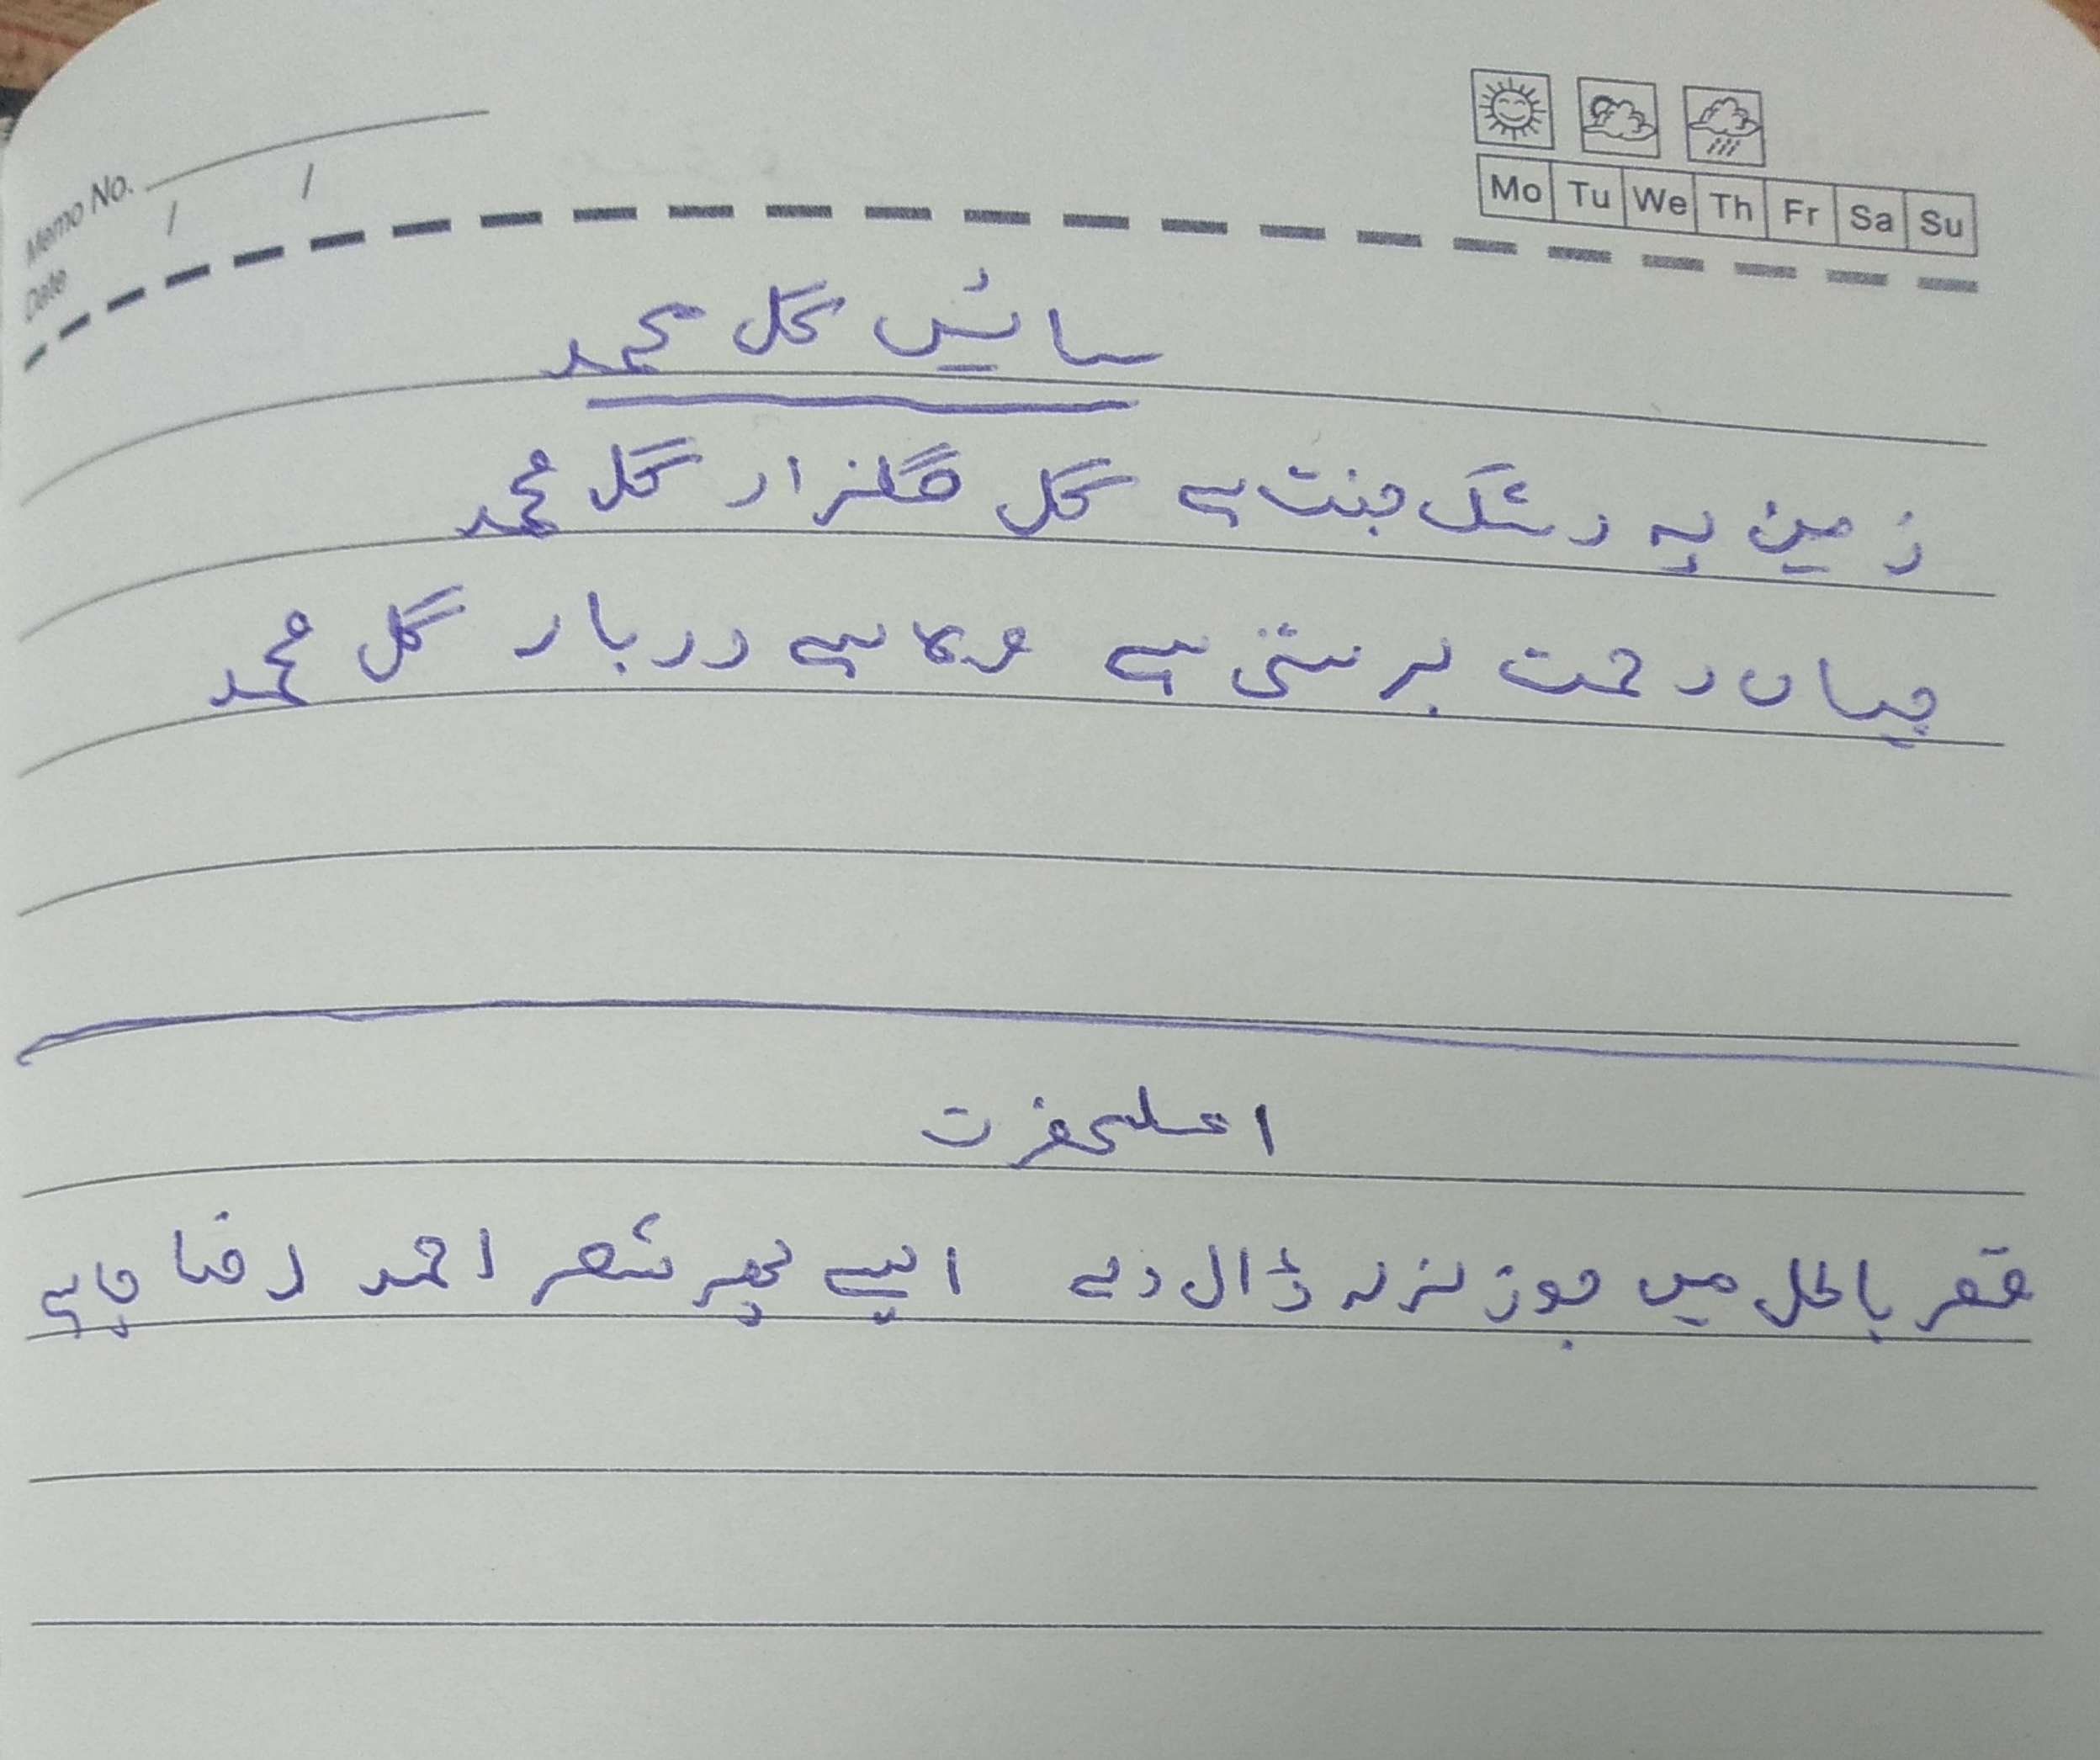 Memo No.
Date / /
Mo Tu We Th Fr Sa Su
سائیں گل محمد
زمین پہ رشک جنت ہے گل گلزار گل محمد
جہاں رحمت برستی ہے وہ کا ہے دربار گل محمد
اعلیحضرت
قصر باطل میں جو زلزلہ ڈال دے ایسے پھر شعر احمد رضا چاہے